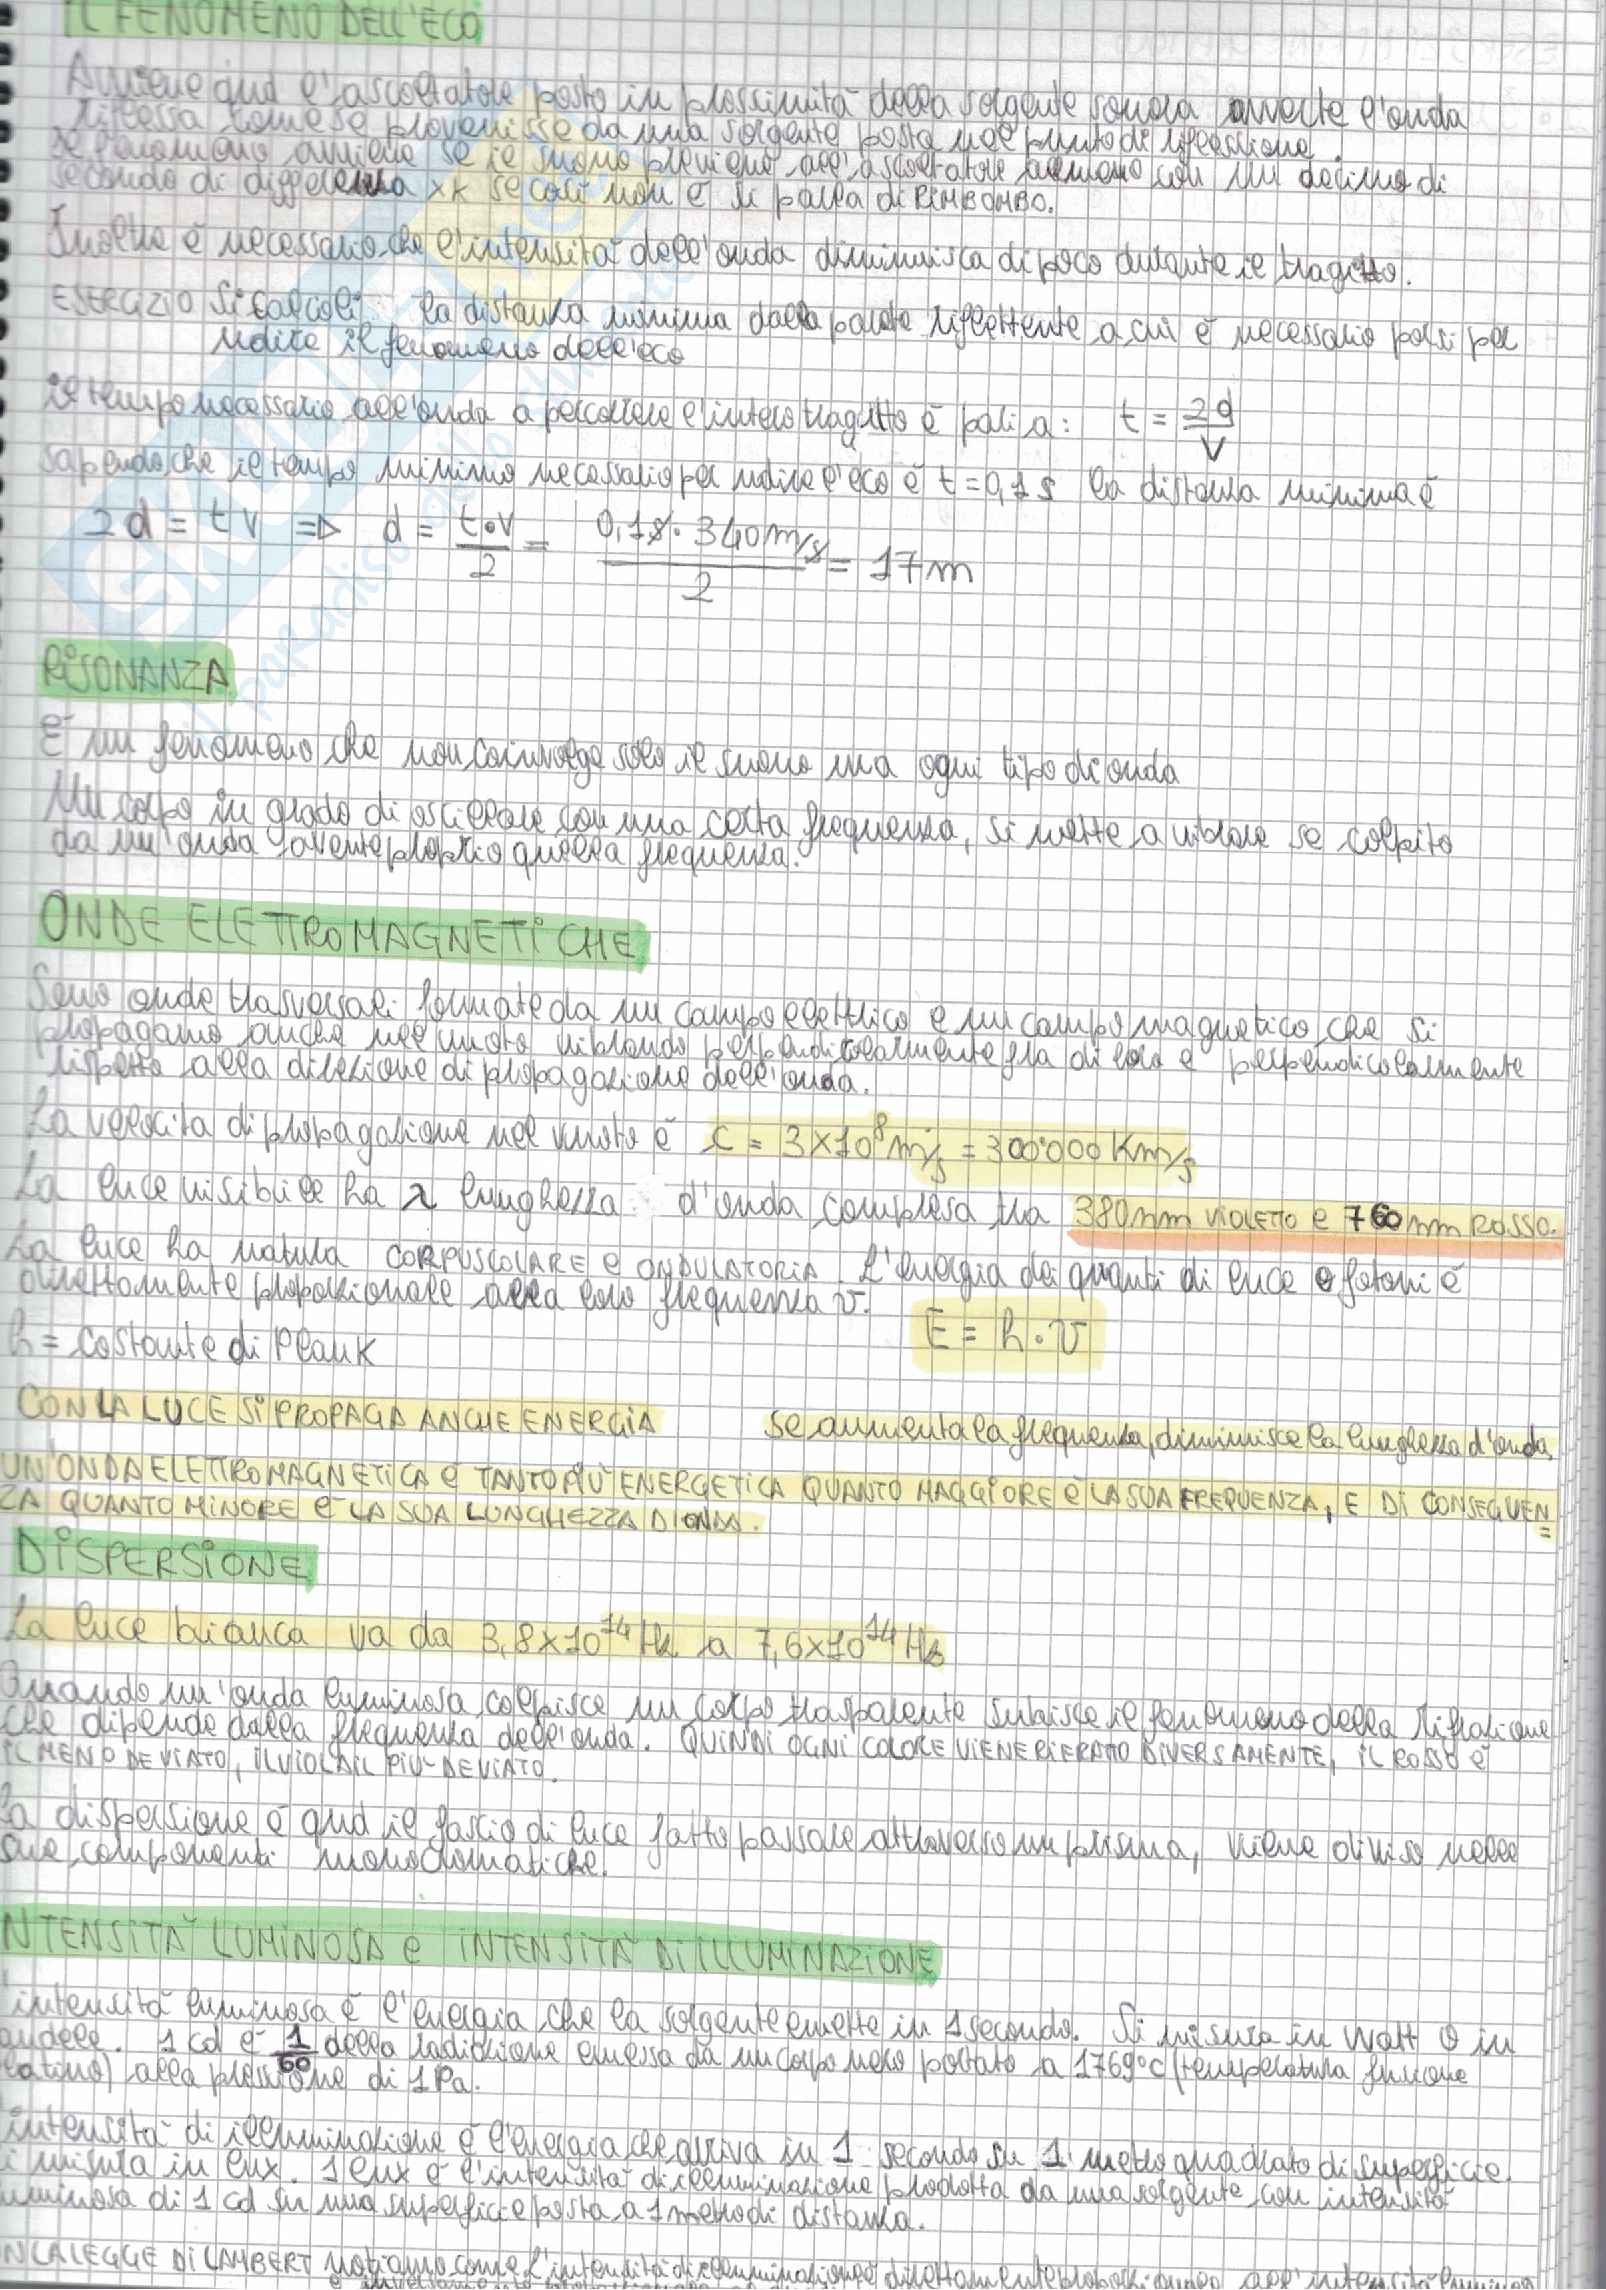 IL FENOMENO DELL'ECO
Avviene qnd l'ascoltatore posto in prossimità della sorgente sonora avverte l'onda
riflessa come se provenisse da una sorgente posta nel punto di riflessione.
Il fenomeno avviene se il suono previene all'ascoltatore almeno con un decimo di
secondo di differenza xk se così non è si parla di RIMBOMBO.
Inoltre è necessario che l'intensità dell'onda diminuisca di poco durante il tragitto.
ESERCIZIO Si calcoli: la distanza minima dalla parete riflettente a cui è necessario porsi per
udire il fenomeno dell'eco
il tempo necessario all'onda a percorrere l'intero tragitto è pari a: t = 2d/V
sapendo che il tempo minimo necessario per udire l'eco è t = 0,1 s la distanza minima è
2d = tv => d = t·v/2 = 0,1s · 340m/s / 2 = 17m
RISONANZA
È un fenomeno che non coinvolge solo il suono ma ogni tipo di onda
Un corpo in grado di oscillare con una certa frequenza, si mette a vibrare se colpito
da un'onda avente proprio quella frequenza.
ONDE ELETTROMAGNETICHE
Sono onde trasversali formate da un campo elettrico e un campo magnetico che si
propagano anche nel vuoto vibrando perpendicolarmente fra di loro e perpendicolarmente
rispetto alla direzione di propagazione dell'onda.
La velocità di propagazione nel vuoto è c = 3×10⁸ m/s = 300'000 Km/s
La luce visibile ha λ lunghezza d'onda compresa tra 380nm VIOLETTO e 760nm ROSSO.
La luce ha natura CORPUSCOLARE e ONDULATORIA. L'energia dei quanti di luce o fotoni è
direttamente proporzionale alla loro frequenza ν. E = h·ν
h = costante di Plank
CON LA LUCE SI PROPAGA ANCHE ENERGIA se aumenta la frequenza, diminuisce la lunghezza d'onda,
UN'ONDA ELETTROMAGNETICA È TANTO PIÙ ENERGETICA QUANTO MAGGIORE È LA SUA FREQUENZA, E DI CONSEGUEN=
ZA QUANTO MINORE È LA SUA LUNGHEZZA D'ONDA.
DISPERSIONE
La luce bianca va da 3,8×10¹⁴ Hz a 7,6×10¹⁴ Hz
Quando un'onda luminosa colpisce un corpo trasparente subisce il fenomeno della rifrazione
che dipende dalla frequenza dell'onda. QUINDI OGNI COLORE VIENE RIFRATTO DIVERSAMENTE, IL ROSSO È
IL MENO DEVIATO, IL VIOLA IL PIÙ DEVIATO.
La dispersione è qnd il fascio di luce fatto passare attraverso un prisma, viene diviso nelle
sue componenti monocromatiche.
NTENSITÀ LUMINOSA e INTENSITÀ DI ILLUMINAZIONE
'intensità luminosa è l'energia che la sorgente emette in 1 secondo. Si misura in Watt o in
andele. 1 cd è 1/60 della radiazione emessa da un corpo nero portato a 1769°C (temperatura fusione
latino) alla pressione di 1Pa.
'intensità di illuminazione è l'energia che arriva in 1 secondo su 1 metro quadrato di superficie.
i misura in lux. 1 lux è l'intensità di illuminazione prodotta da una sorgente con intensità
uminosa di 1 cd su una superficie posta a 1 metro di distanza.
ON LA LEGGE DI LAMBERT notiamo come l'intensità di illuminazione è direttamente proporzionale all'intensità luminosa